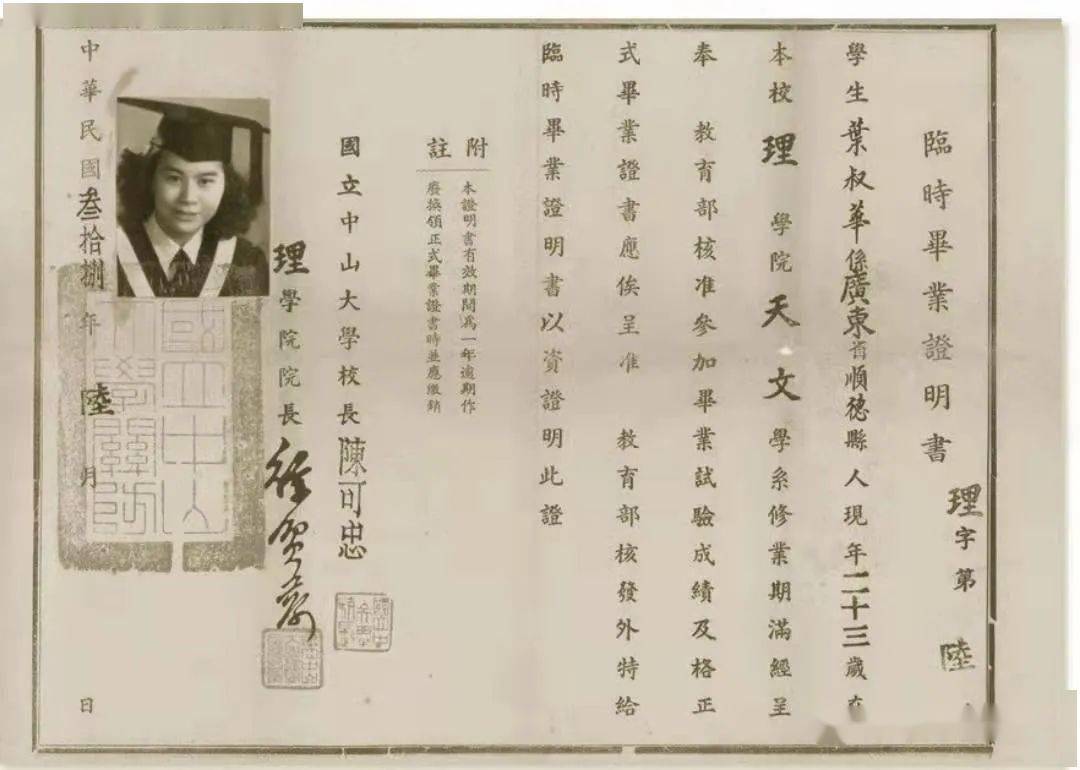 臨時畢業證明書
理字第 陸
學生葉叔華係廣東省順德縣人現年二十三歲在
本校理學院天文學系修業期滿經呈
奉 教育部核准參加畢業試驗成績及格正
式畢業證書應俟呈准 教育部核發外特給
臨時畢業證明書以資證明此證
附註
本證明書有效期間為一年逾期作
廢換領正式畢業證書時並應繳銷
國立中山大學校長陳可忠
理學院院長徐賢恭
中華民國叁拾捌年陸月 日